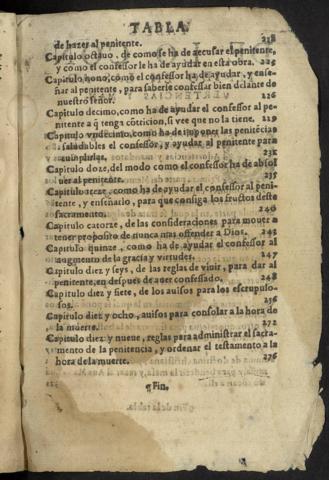 TABLA.
de hazer al penitente. 218
Capitulo octauo, de como se ha de accusar el penitente,
y como el confessor le ha de ayudar en esta obra. 225
Capitulo nono, como el confessor ha de ayudar, y ense-
ñar al penitente, para saberse confessar bien delante de
nuestro señor. 226
Capitulo decimo, como ha de ayudar el confessor al pe-
nitente a q̃ tenga cõtricion, si vee que no la tiene. 229
Capitulo vndecimo, como ha de imponer las penitẽcias
saludables el confessor, y ayudar al penitente para
cumplirlas. 232
Capitulo doze, del modo como el confessor ha de absol
uer al penitente. 235
Capitulo treze, como ha de ayudar el confessor al peni-
tente, y enseñarlo, para que consiga los fructos deste
sacramento. 240
Capitulo catorze, de las consideraciones para mouer a
tener proposito de nunca mas offender a Dios. 243
Capitulo quinze, como ha de ayudar el confessor al
augmento de la gracia y virtudes. 247
Capitulo diez y seys, de las reglas de viuir, para dar al
penitente, en despues de auer confessado. 248
Capitulo diez y siete, de los auisos para los escrupulo-
sos. 256
Capitulo diez y ocho, auisos para consolar a la hora de
la muerte. 272
Capitulo diez y nueue, reglas para administrar el sacra-
mento de la penitencia, y ordenar el testamento a la
hora de la muerte. 276
¶Fin.